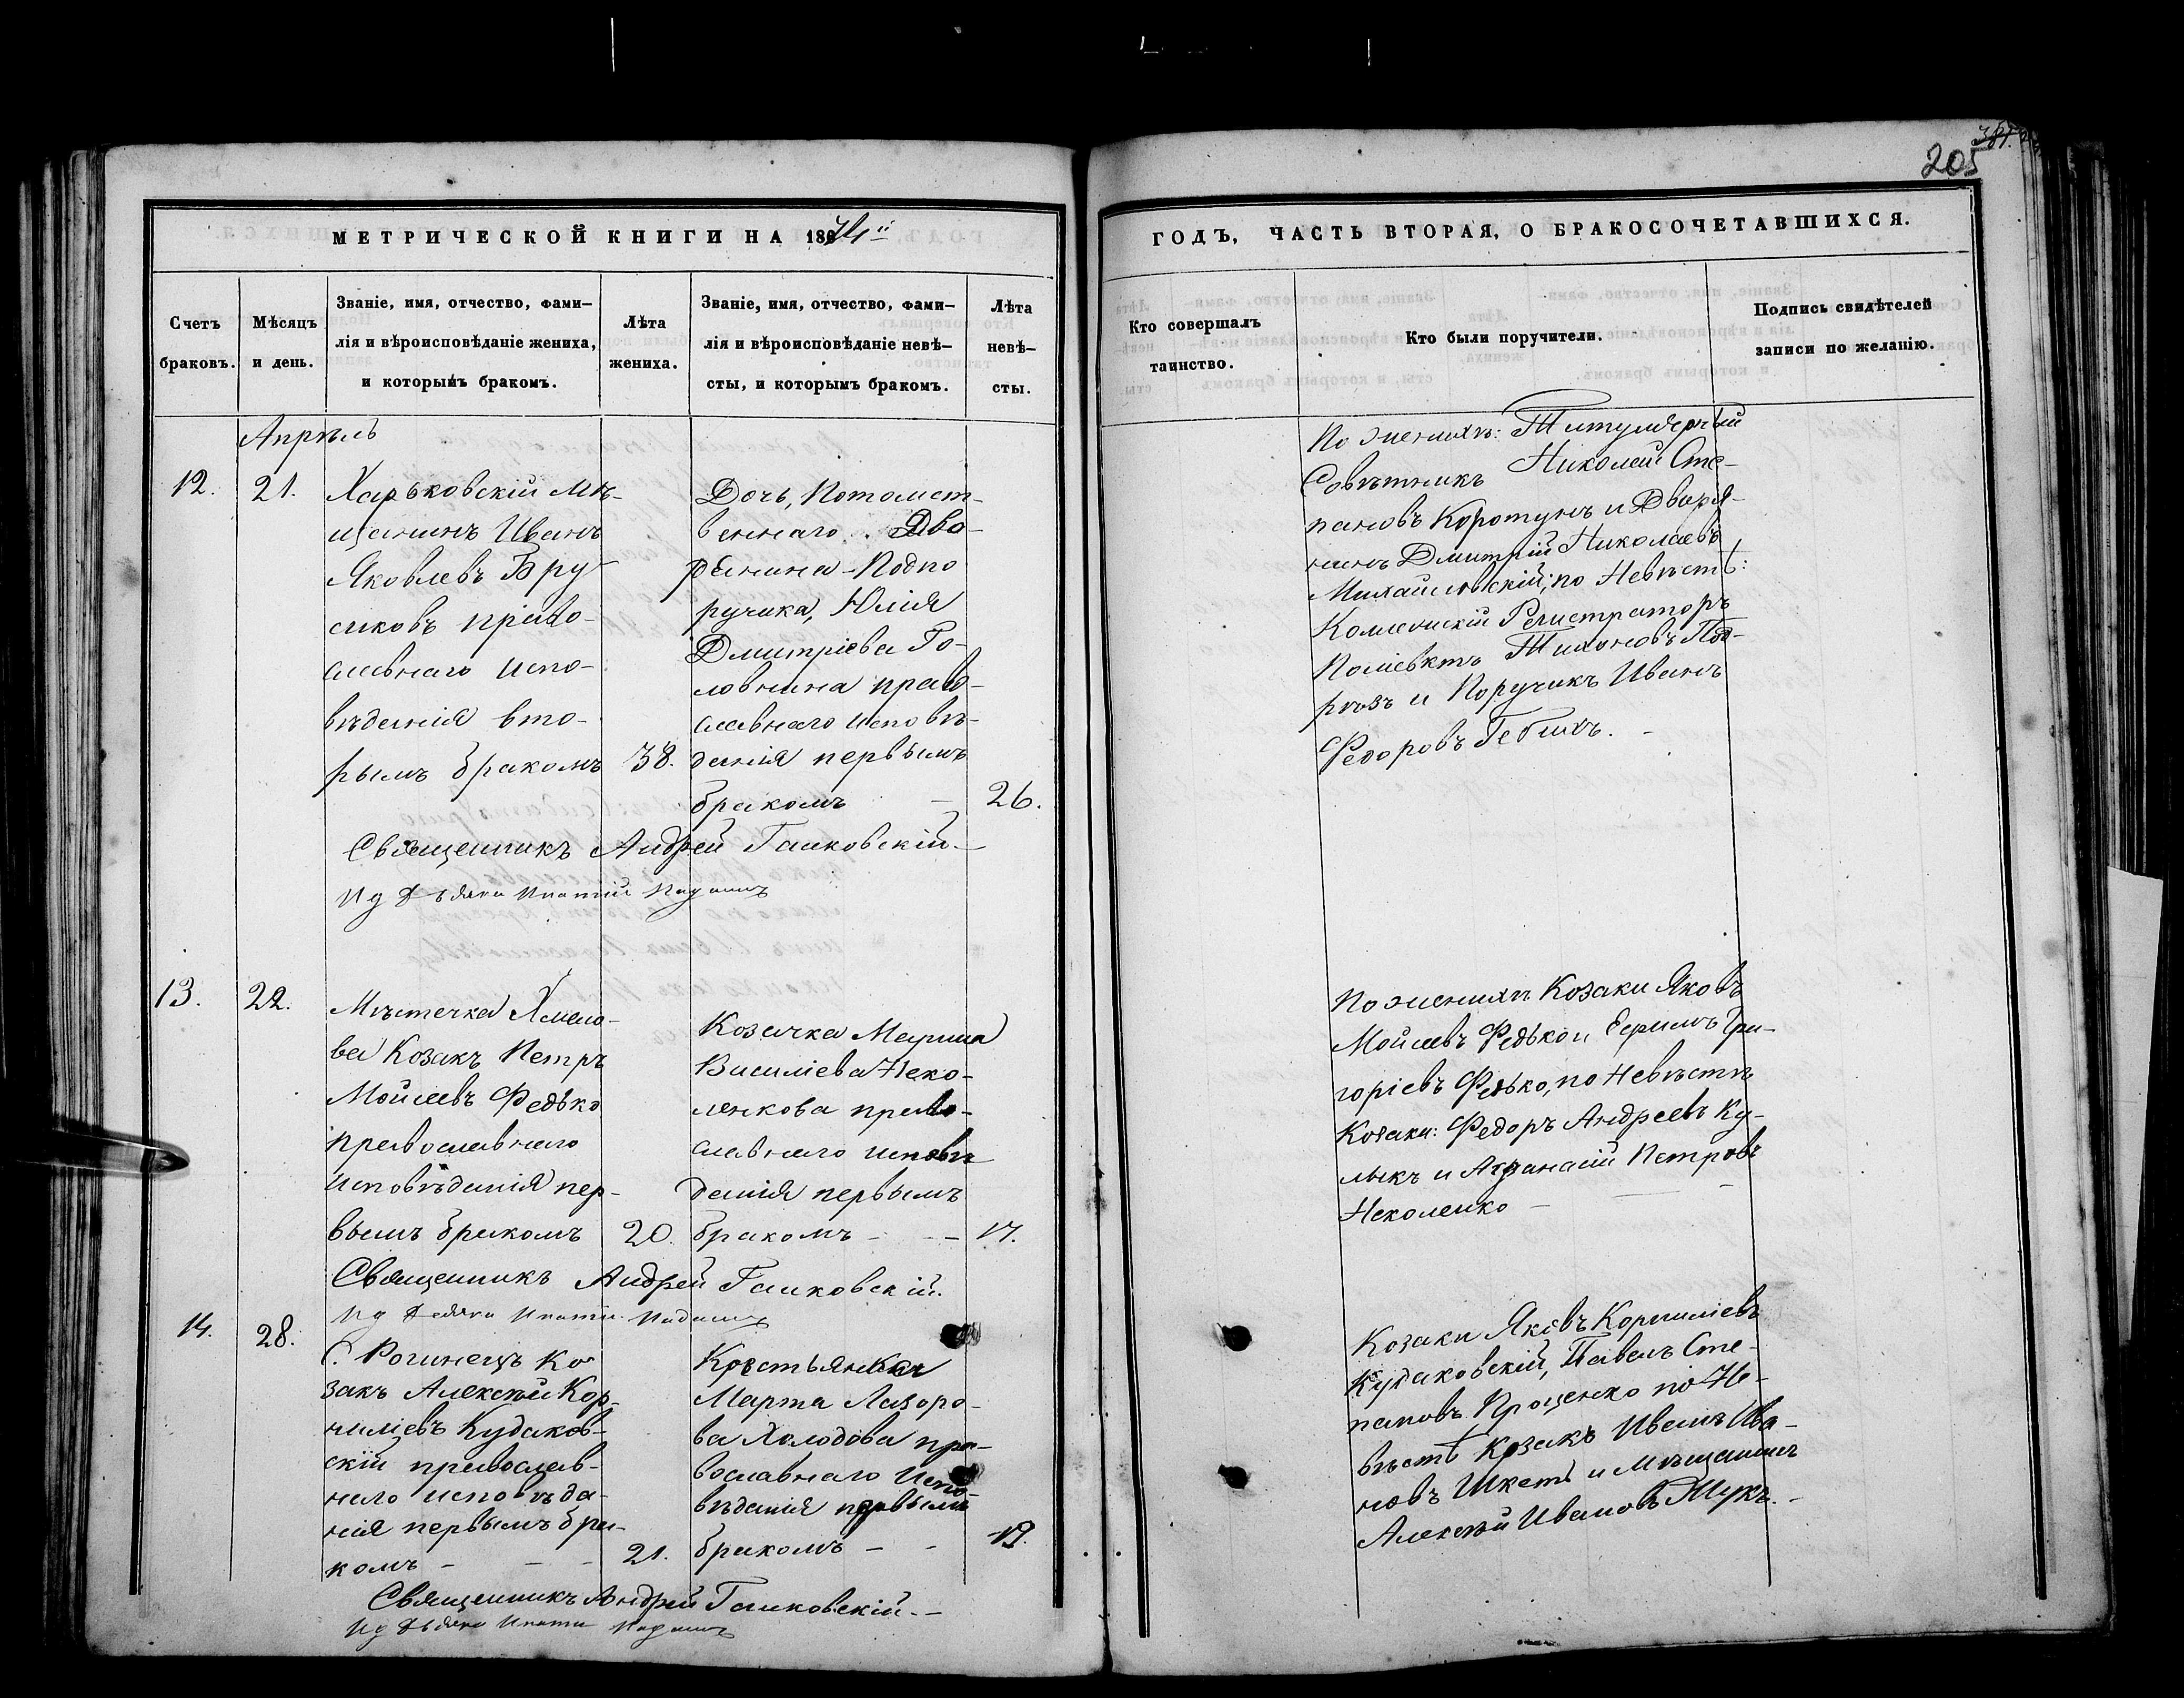 205
МЕТРИЧЕСКОЙ КНИГИ НА 1874й
ГОДЪ, ЧАСТЬ ВТОРАЯ, О БРАКОСОЧЕТАВШИХСЯ.
Счетъ
браковъ.
Мѣсяцъ
и день.
Званіе, имя, отчество, фами–
лія и вѣроисповѣданіе жениха,
и которымъ бракомъ.
Лѣта
жениха.
Званіе, имя, отчество, фами–
лія и вѣроисповѣданіе невѣ–
сты, и которымъ бракомъ.
Лѣта
невѣ–
сты.
Кто совершалъ
таинство.
Кто были поручители.
Подпись свидѣтелей
записи по желанію.
Апрѣль
12.
21.
Харьковскій Мѣ-
щанинъ Иванъ
Яковлевъ Бру-
сиковъ право-
славнаго испо-
вѣданія вто-
рымъ бракомъ
38.
Дочь, Потомст-
веннаго Дво-
рянина - Подпо
ручика, Юлія
Дмитріева Го-
ловнина право-
славнаго исповѣ-
данія первымъ
бракомъ –
26.
По женихѣ: Титулярный
Совѣтникъ Николай Сте-
пановъ Коротунъ и Дворя-
нинъ Дмитрій Николаевъ
Михайловскій; по Невѣстѣ:
Коллежскій Регистраторъ
Поліевктъ Тихоновъ
и Поручикъ Иванъ
Федоровъ
Священникъ Андрей Галковскій.–
И д Дьяка Ипатій
13.
22.
Мѣстечка Хмело-
ва Козакъ Петръ
Мойсеевъ Федько
православнаго
исповѣданія пер-
вымъ бракомъ
20.
Козачка Марина
Василіева Неко-
ленкова право-
славнаго исповѣ
данія первымъ
бракомъ – –
17.
По женихѣ Козаки Яковъ
Мойсеевъ Федько и Ефимъ Гри-
горіевъ Федько, по Невѣстѣ
Козаки: Федоръ Андреевъ Ку-
лыкъ и Афанасій Петровъ
Неколенко –
Священникъ Андрей Галковскій.
И д Дьяка Ипатій
14.
28.
С. Рогинецъ Ко-
закъ Алексѣй Кор-
ниліевъ Кудаков-
скій православ-
наго исповѣда-
нія первымъ бра-
комъ – – –
21.
Крестьянка
Марта Лазоро-
ва Холодова пра-
вославнаго Испо-
вѣданія первымъ
бракомъ – –
19.
Козаки Яковъ Корниліевъ
Кудаковскій, Павелъ Сте-
пановъ Проценко по Не-
вѣстѣ Козакъ Иванъ Ива-
новъ Шкеть и Мѣщанинъ
Алексѣй Ивановъ Жукъ. –
Священникъ Андрей Галковскій.–
И д Дьяка Ипатій